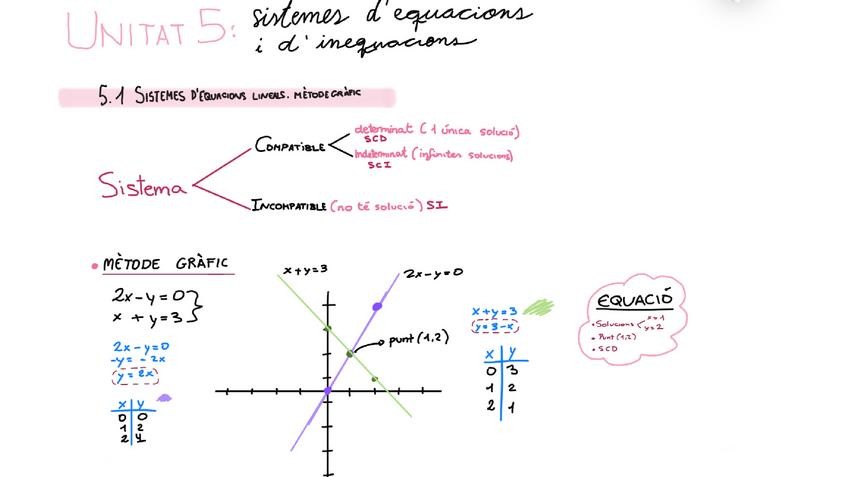 UNITAT 5: sistemes d'equacions
i d'inequacions
5.1 SISTEMES D'EQUACIONS LINEALS. MÈTODE GRÀFIC
Sistema
COMPATIBLE
determinat (1 única solució)
SCD
Indeterminat (infinites solucions)
SCI
INCOMPATIBLE (no té solució) SI
• MÈTODE GRÀFIC
2x-y=0
x+y=3
2x-y=0
-y=-2x
y=2x
x y
0 0
1 2
2 4
x+y=3
2x-y=0
punt (1,2)
x+y=3
y=3-x
x y
0 3
1 2
2 1
EQUACIÓ
• Solucions x=1
y=2
• Punt (1,2)
• SCD